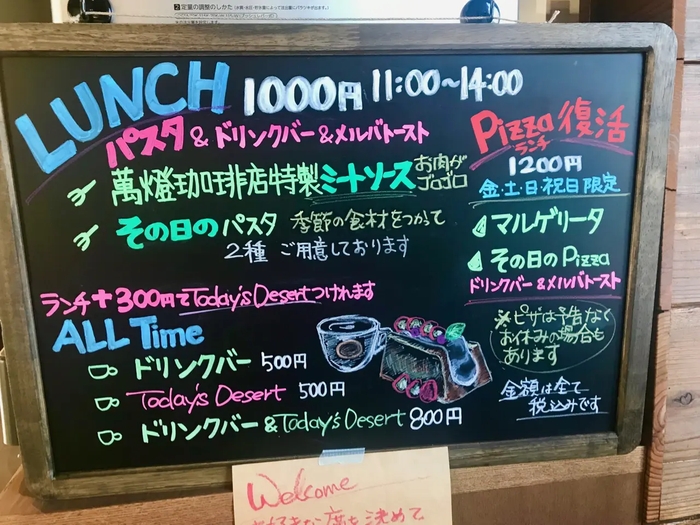 2 定量の調整のしかた
LUNCH 1000円 11:00~14:00
パスタ & ドリンクバー & メルバトースト
萬燈珈琲店特製ミートソース お肉が
ゴロゴロ
その日のパスタ 季節の食材をつかって
2種 ご用意しております
ランチ+300円で Today's Desert つけれます
Pizza 復活
ランチ
1200円
金・土・日・祝日限定
マルゲリータ
その日の Pizza
ドリンクバー & メルバトースト
※ピザは予告なく
お休みの場合も
あります
金額は全て
税込みです
ALL Time
ドリンクバー 500円
Today's Desert 500円
ドリンクバー & Today's Desert 800円
Welcome
お好きな席を決めて